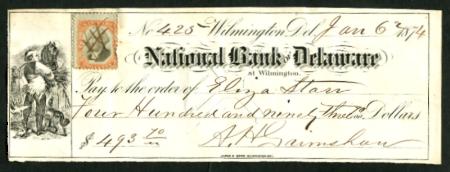 No 425 Wilmington Del, Jan 6th 1874
National Bank of Delaware
at Wilmington.
Pay to the order of Eliza Starr
Four Hundred and ninety three Dollars
$ 493
A. H. Grimshaw